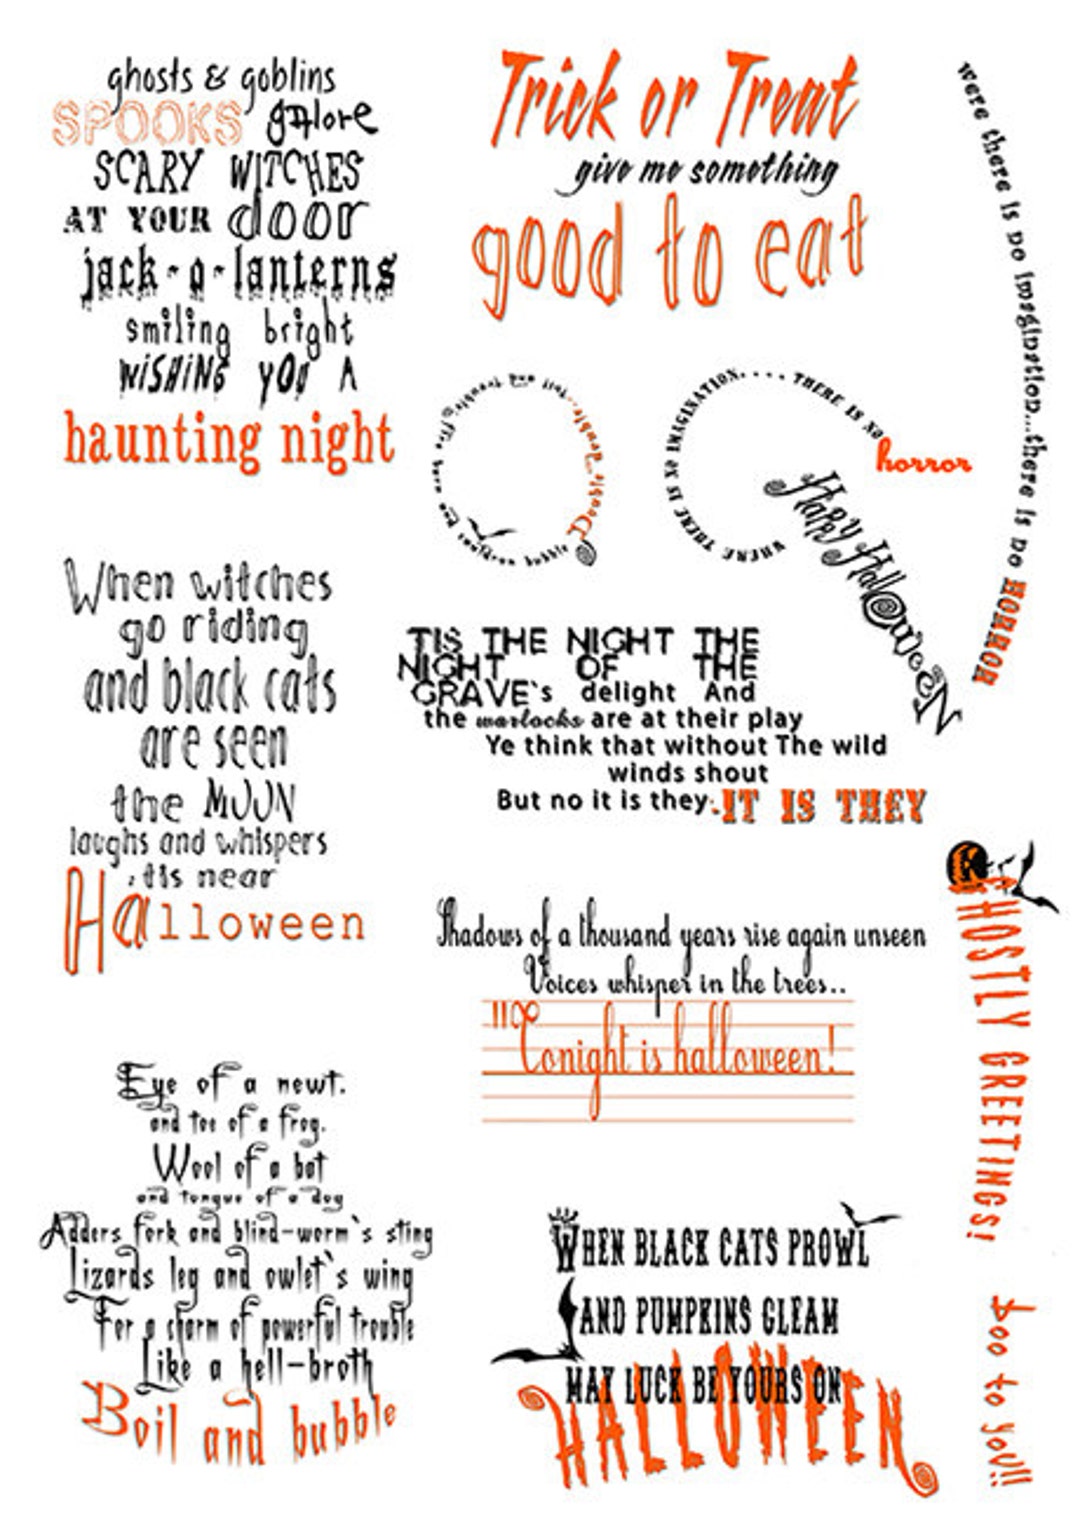 ghosts & goblins
SPOOKS galore
SCARY WITCHES
AT YOUR door
jack-o-lanterns
smiling bright
WISHING YOU A
haunting night
Trick or Treat
give me something
good to eat
were there is no imagination...there is no HORROR
Double..double..toil and trouble
fire burn and cauldron bubble
WHERE THERE IS NO IMAGINATION.... THERE IS NO horror
HaPPY HallOWeeN
When witches
go riding
and black cats
are seen
the MOON
laughs and whispers
,tis near
Halloween
TIS THE NIGHT THE
NIGHT OF THE
GRAVE`s delight And
the warlocks are at their play
Ye think that without The wild
winds shout
But no it is they-IT IS THEY
Shadows of a thousand years rise again unseen
Voices whisper in the trees..
"Tonight is halloween!
GHOSTLY GREETINGS!
boo to you!!!
Eye of a newt.
and toe of a frog.
Wool of a bat
and tongue of a dog
Adders fork and blind-worm`s sting
Lizards leg and owlet`s wing
For a charm of powerful trouble
Like a hell-broth
Boil and bubble
WHEN BLACK CATS PROWL
AND PUMPKINS GLEAM
MAY LUCK BE YOURS ON
HALLOWEEN